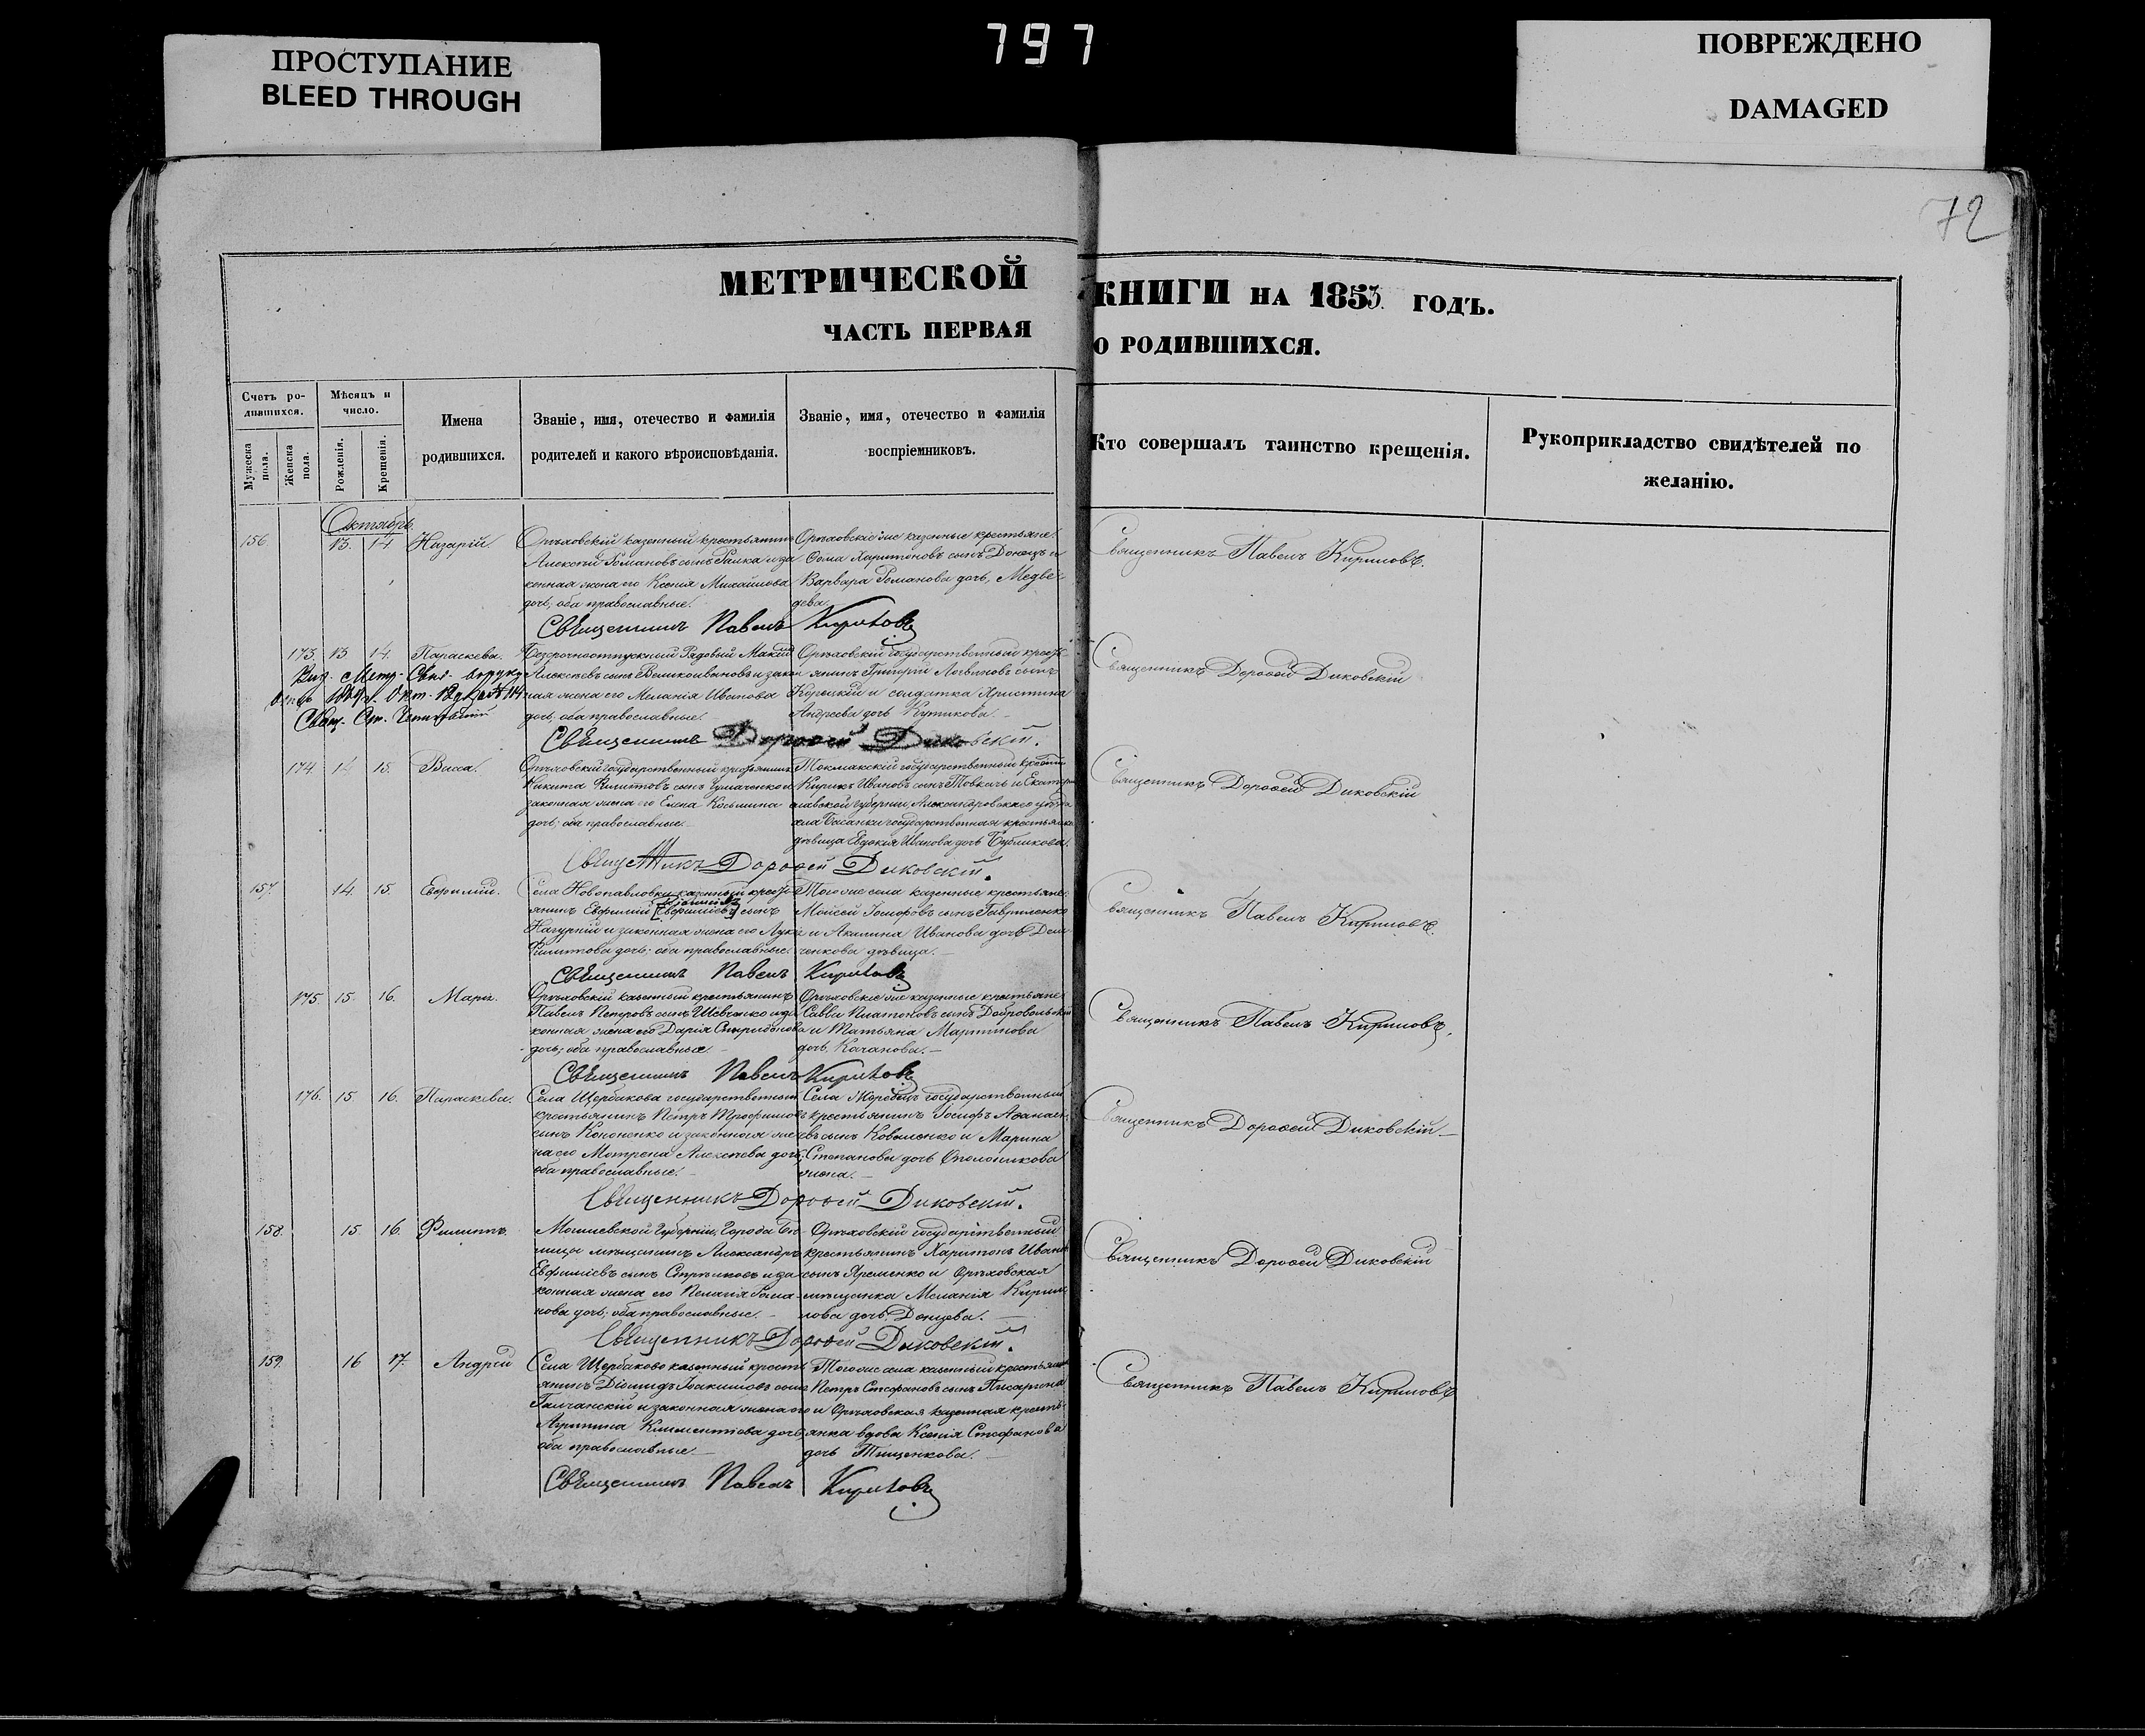 797
ПРОСТУПАНИЕ
BLEED THROUGH
ПОВРЕЖДЕНО
DAMAGED
72
МЕТРИЧЕСКОЙ КНИГИ НА 1853 ГОДЪ.
ЧАСТЬ ПЕРВАЯ О РОДИВШИХСЯ.
Счетъ ро-
дившихся.
Мужеска пола.
Женска пола.
Мѣсяцъ и
число.
Рожденія.
Крещенія.
Имена
родившихся.
Званіе, имя, отечество и фамилія
родителей и какого вѣроисповѣданія.
Званіе, имя, отечество и фамилія
воспріемниковъ.
Кто совершалъ таинство крещенія.
Рукоприкладство свидѣтелей по
желанію.
Октябрь.
156 13. 14 Назарій.
Орѣховскій казенный крестьянинъ
Алексѣй Романовъ сынъ и за
конная жена его Ксенія Михайлова
дочь; оба православные.
Орѣховскіе же казенные крестьяне:
Ѳома Харитоновъ сынъ Донецъ и
Варвара Романова дочь, Медвѣ-
дева.
Священникъ Павелъ Кириловъ.
Священникъ Павелъ Кириловъ
173. 13 14. Параскева.
Безсрочноотпускный Рядовый
Алексѣевъ сынъ Великоивановъ и закон
ная жена его Меланія Иванова
дочь; оба православные.
Орѣховскій государственный кресть-
янинъ Григорій сынъ
Корецкій и солдатка Христина
Андреева дочь Кутикова.
Священникъ Дороѳей Диковскій
Священникъ Дороѳей Диковскій.
174. 14 15. Васса.
Орѣховскій государственный крестьянинъ
Никита Филиповъ сынъ
законная жена его Елена Косьмина
дочь; оба православные.
Токмакскій государственный
Кирикъ Ивановъ сынъ Товкачъ и Екатери
славской губерніи, Александровскаго уѣзда
села Басанки государственная крестьянка
дѣвица Евдокія Иванова дочь Бубликова.
Священникъ Дороѳей Диковскій
Священникъ Дороѳей Диковскій.
157. 14. 15. Евфимій.
Села Новопавловки казенный кресть-
янинъ Евфимій [Евфиміевъ] сынъ
Нагурній и законная жена его
Филипова дочь; оба православные.
Того же села казенные крестьяне:
Мойсей Іосифовъ сынъ Гавриленко
и Акилина Иванова дочь Дем
ченкова дѣвица.
Священникъ Павелъ Кириловъ.
Священникъ Павелъ Кириловъ
175. 15. 16. Марія.
Орѣховскій казенный крестьянинъ
Павелъ Петровъ сынъ Шевченко и за
конная жена его Дарія Спиридонова
дочь; оба православные.
Орѣховскіе же казенные крестьяне
Савва Платоновъ сынъ Добровольскій
и Татьяна Мартинова
дочь Качанова.
Священникъ Павелъ Кириловъ.
Священникъ Павелъ Кириловъ
176. 15 16. Параскева.
Села Щербакова государственный
крестьянинъ Петръ Трофимовъ
сынъ Кононенко и законная же
на его Мотрона Алексѣева дочь;
оба православные.
Села Жеребецъ государственный
крестьянинъ Іосифъ Аѳанась
евъ сынъ Коваленко и Марина
Степанова дочь Ополоникова
жена.
Священникъ Дороѳей Диковскій
Священникъ Дороѳей Диковскій.
158. 15 16. Филиппъ.
Могилевской Губерніи, Города Бѣ-
лицы мѣщанинъ Александръ
Евфиміевъ сынъ Стрѣлковъ и за
конная жена его Пелагія Рома-
нова дочь; оба православные.
Орѣховскій государственный
крестьянинъ Харитонъ Иванов
сынъ Яременко и Орѣховская
мѣщанка Меланія Кирил
лова дочь Донцева.
Священникъ Дороѳей Диковскій
Священникъ Дороѳей Диковскій.
159. 16 17. Андрей
Села Щербаково казенный кресть
янинъ Діомидъ Іоакимовъ сынъ
Галчанскій и законная жена его
Агрипина Климентіева дочь
оба православные.
Того же села казенный крестьянинъ
Петръ Стефановъ сынъ
и Орѣховская казенная кресть-
янка вдова Ксенія Стефанова
дочь Тищенкова.
Священникъ Павелъ Кириловъ
Священникъ Павелъ Кириловъ